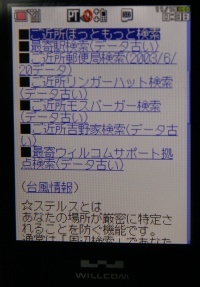 ■ご近所ほっともっと検索
■最寄駅検索(データ古い)
■ご近所郵便局検索(2003/6/
20データ)
■ご近所リンガーハット検索
(データ古い)
■ご近所モスバーガー検索
(データ古い)
■ご近所吉野家検索(データ古
い)
■最寄ウィルコムサポート拠
点検索(データ古い)
(台風情報)
☆ステルスとは
あなたの場所が厳密に特定さ
れることを防ぐ機能です。
WILLCOM